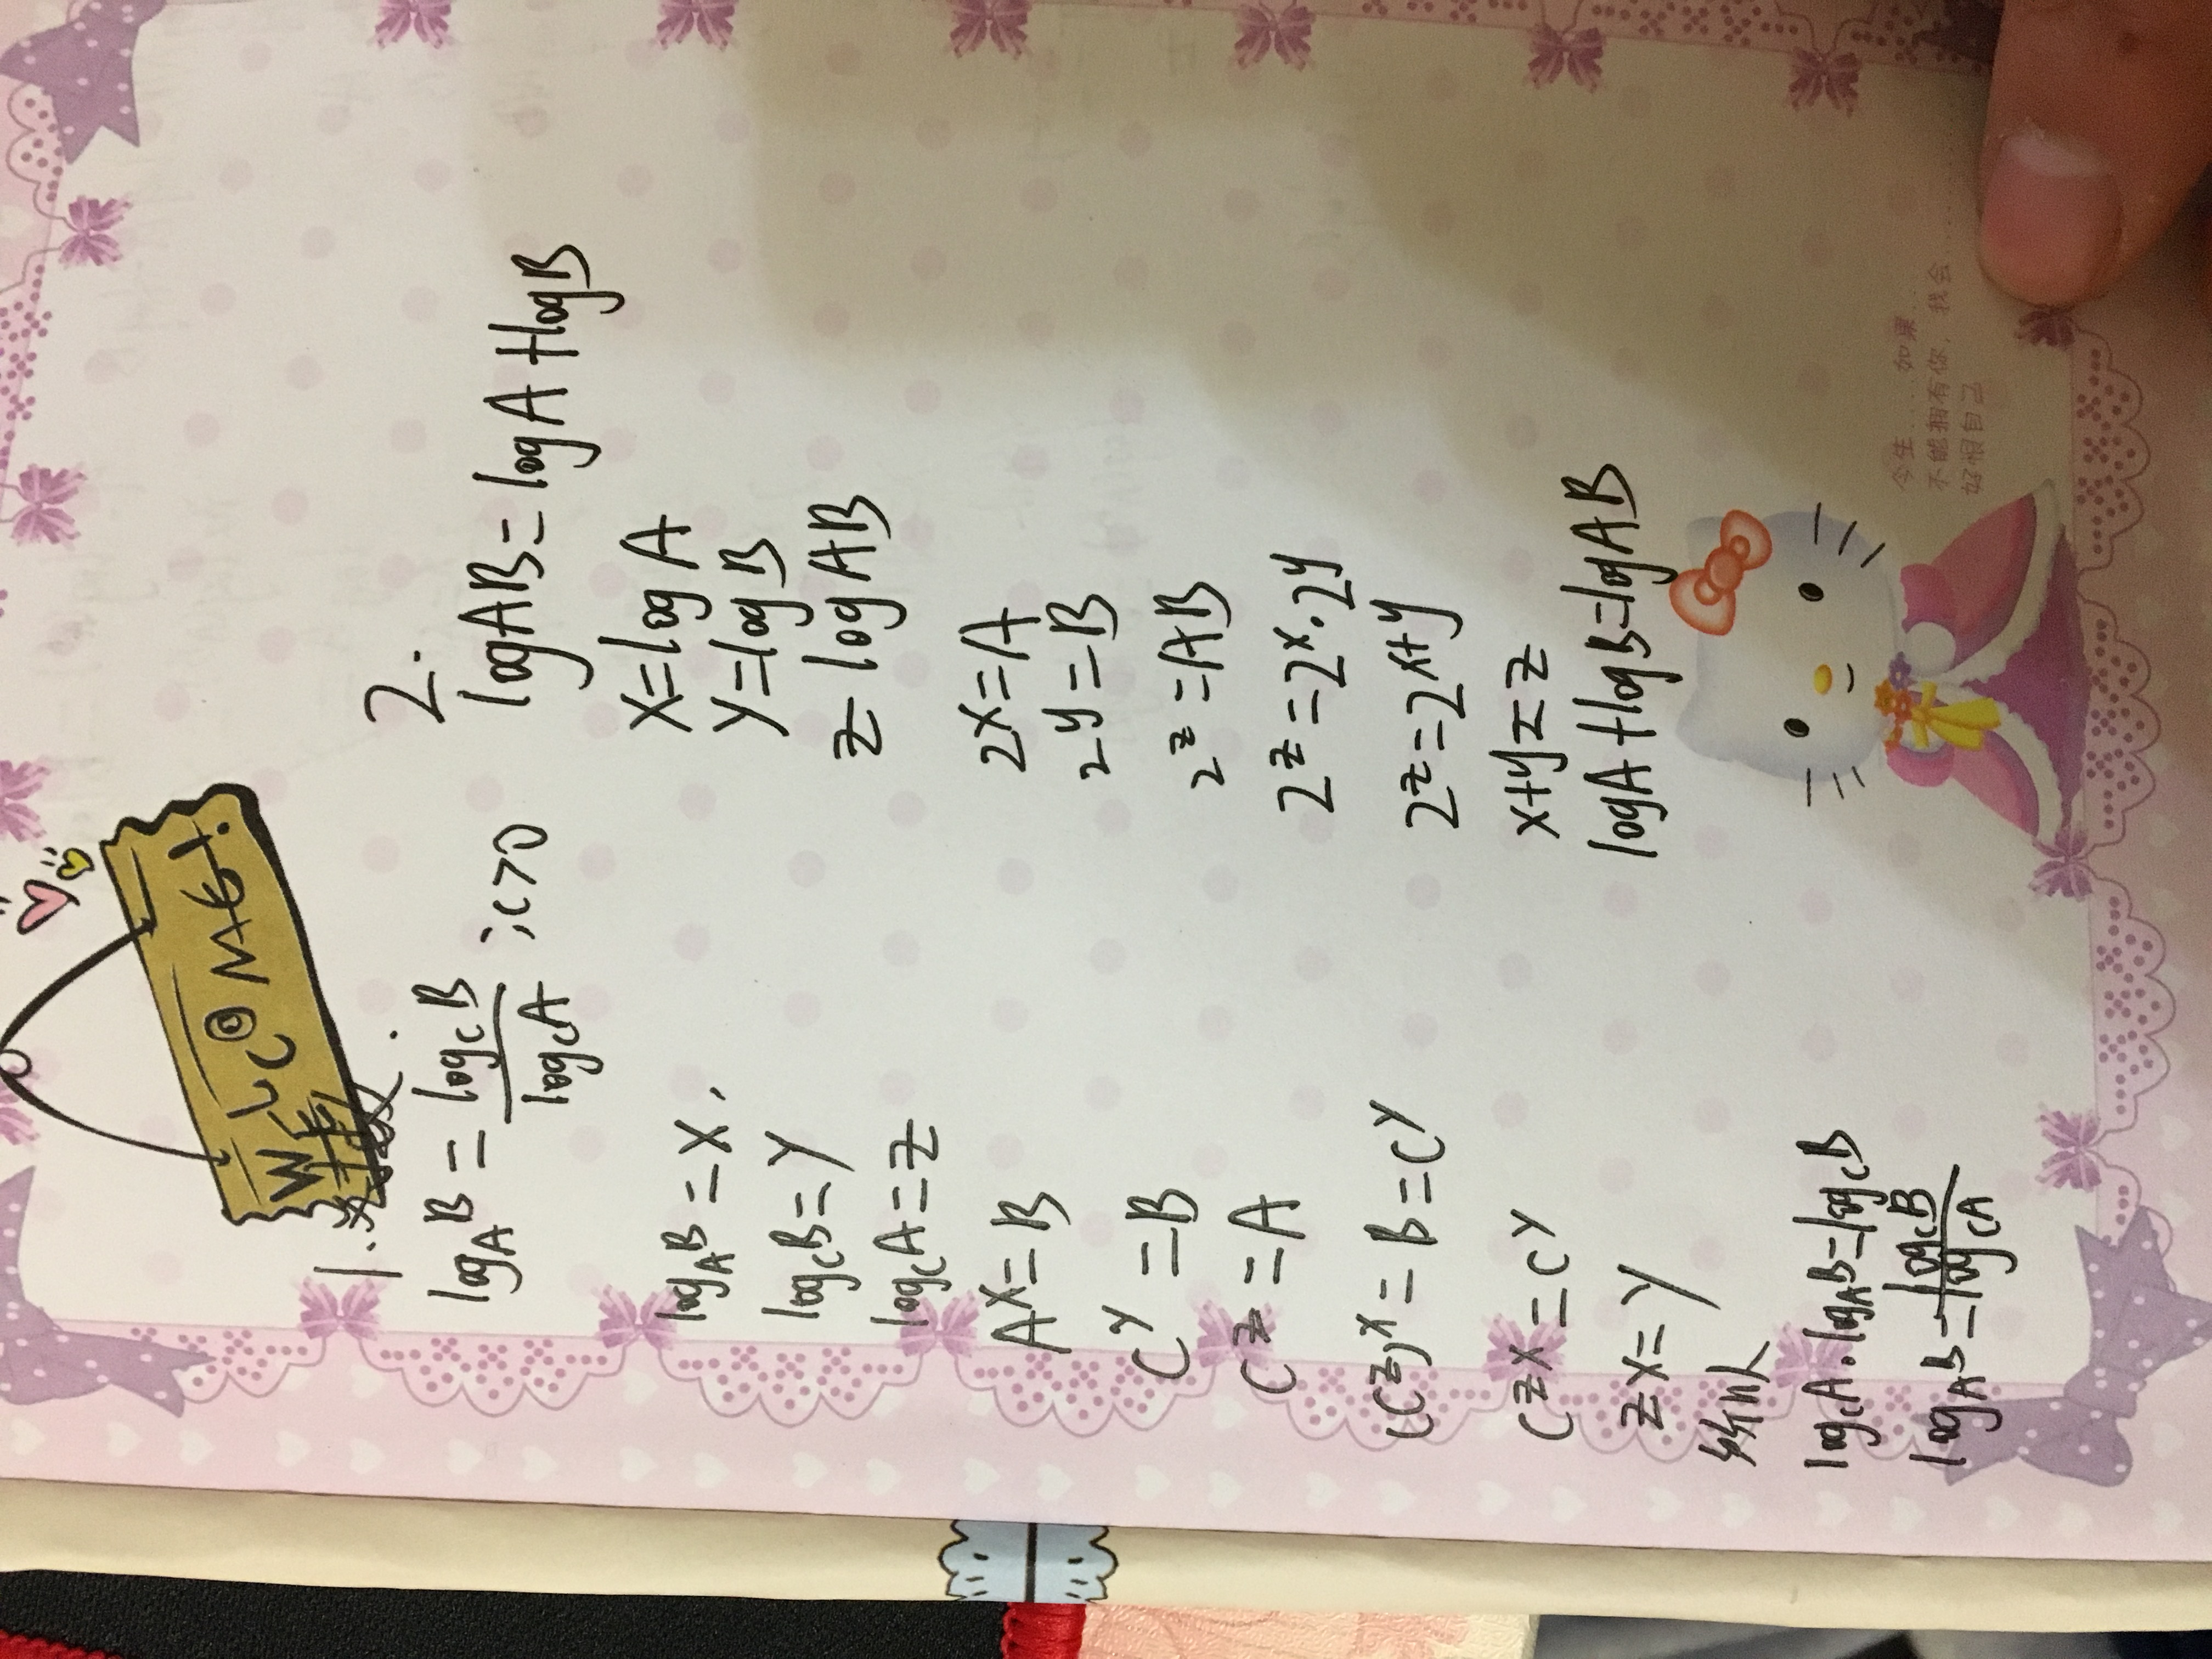 WELCOME!
1. 对数.
log_A B = log_C B / log_C A ; c>0
log_A B = X,
log_C B = Y
log_C A = Z
A^X = B
C^Y = B
C^Z = A
(C^Z)^X = B = C^Y
C^ZX = C^Y
ZX = Y
所以
log_C A · log_A B = log_C B
log_A B = log_C B / log_C A
2.
log AB = log A + log B
X = log A
Y = log B
Z log AB
2^X = A
2^y = B
2^z = AB
2^z = 2^x · 2^y
2^z = 2^x+y
x+y = z
log A + log B = log AB
今生.... 如果..
不能拥有你，我会..........
好恨自己